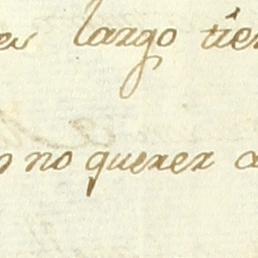 es largo tie
no querer